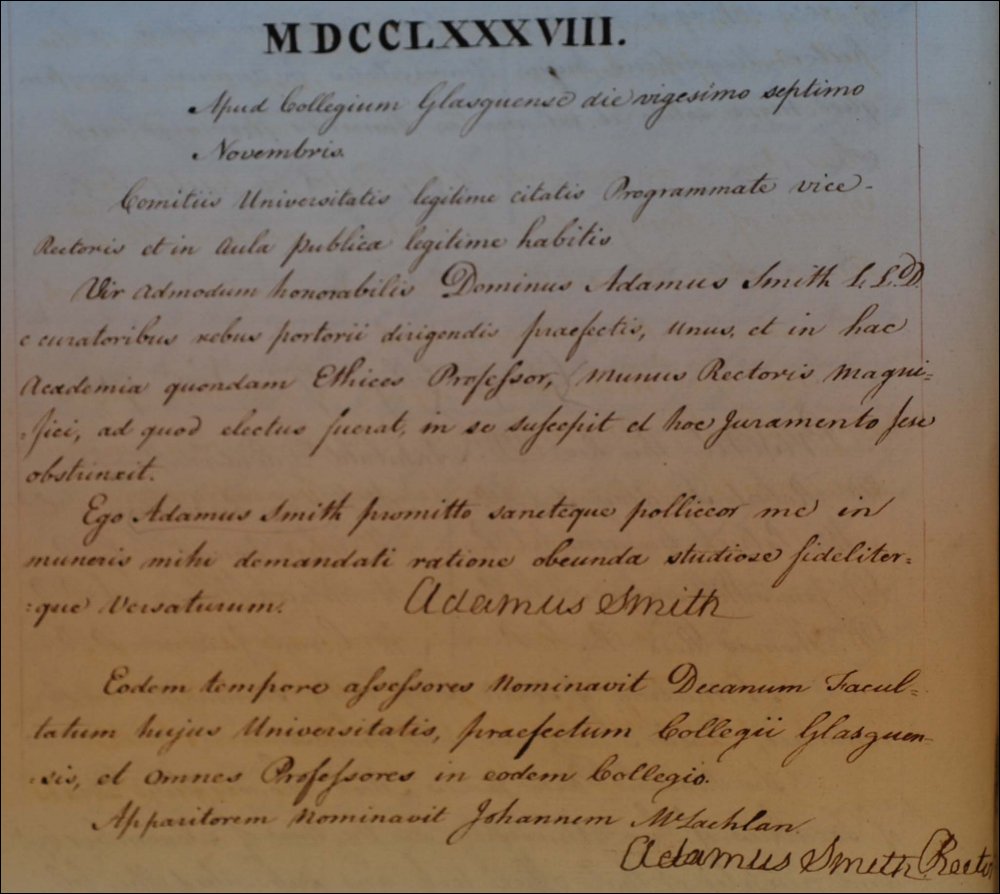 MDCCLXXXVIII.
Apud Collegium Glasguense die vigesimo septimo
Novembris.
Comitiis Universitatis legitime citatis Programmate vice-
Rectoris et in Aula publica legitime habitis
Vir admodum honorabilis Dominus Adamus Smith L.L.D
e curatoribus rebus portorii dirigendis praefectis, unus, et in hac
Academia quondam Ethices Professor, munus Rectoris magni-
-fici, ad quod electus fuerat, in se suscepit et hoc Juramento sese
obstrinxit.
Ego Adamus Smith promitto sancteque polliceor me in
muneris mihi demandati ratione obeunda studiose fideliter-
-que versaturum. Adamus Smith
Eodem tempore assessores nominavit Decanum Facul-
-tatum hujus Universitatis, praefectum Collegii Glasguen-
-sis, et omnes Professores in eodem Collegio.
Apparitorem nominavit Johannem McLachlan
Adamus Smith Recto